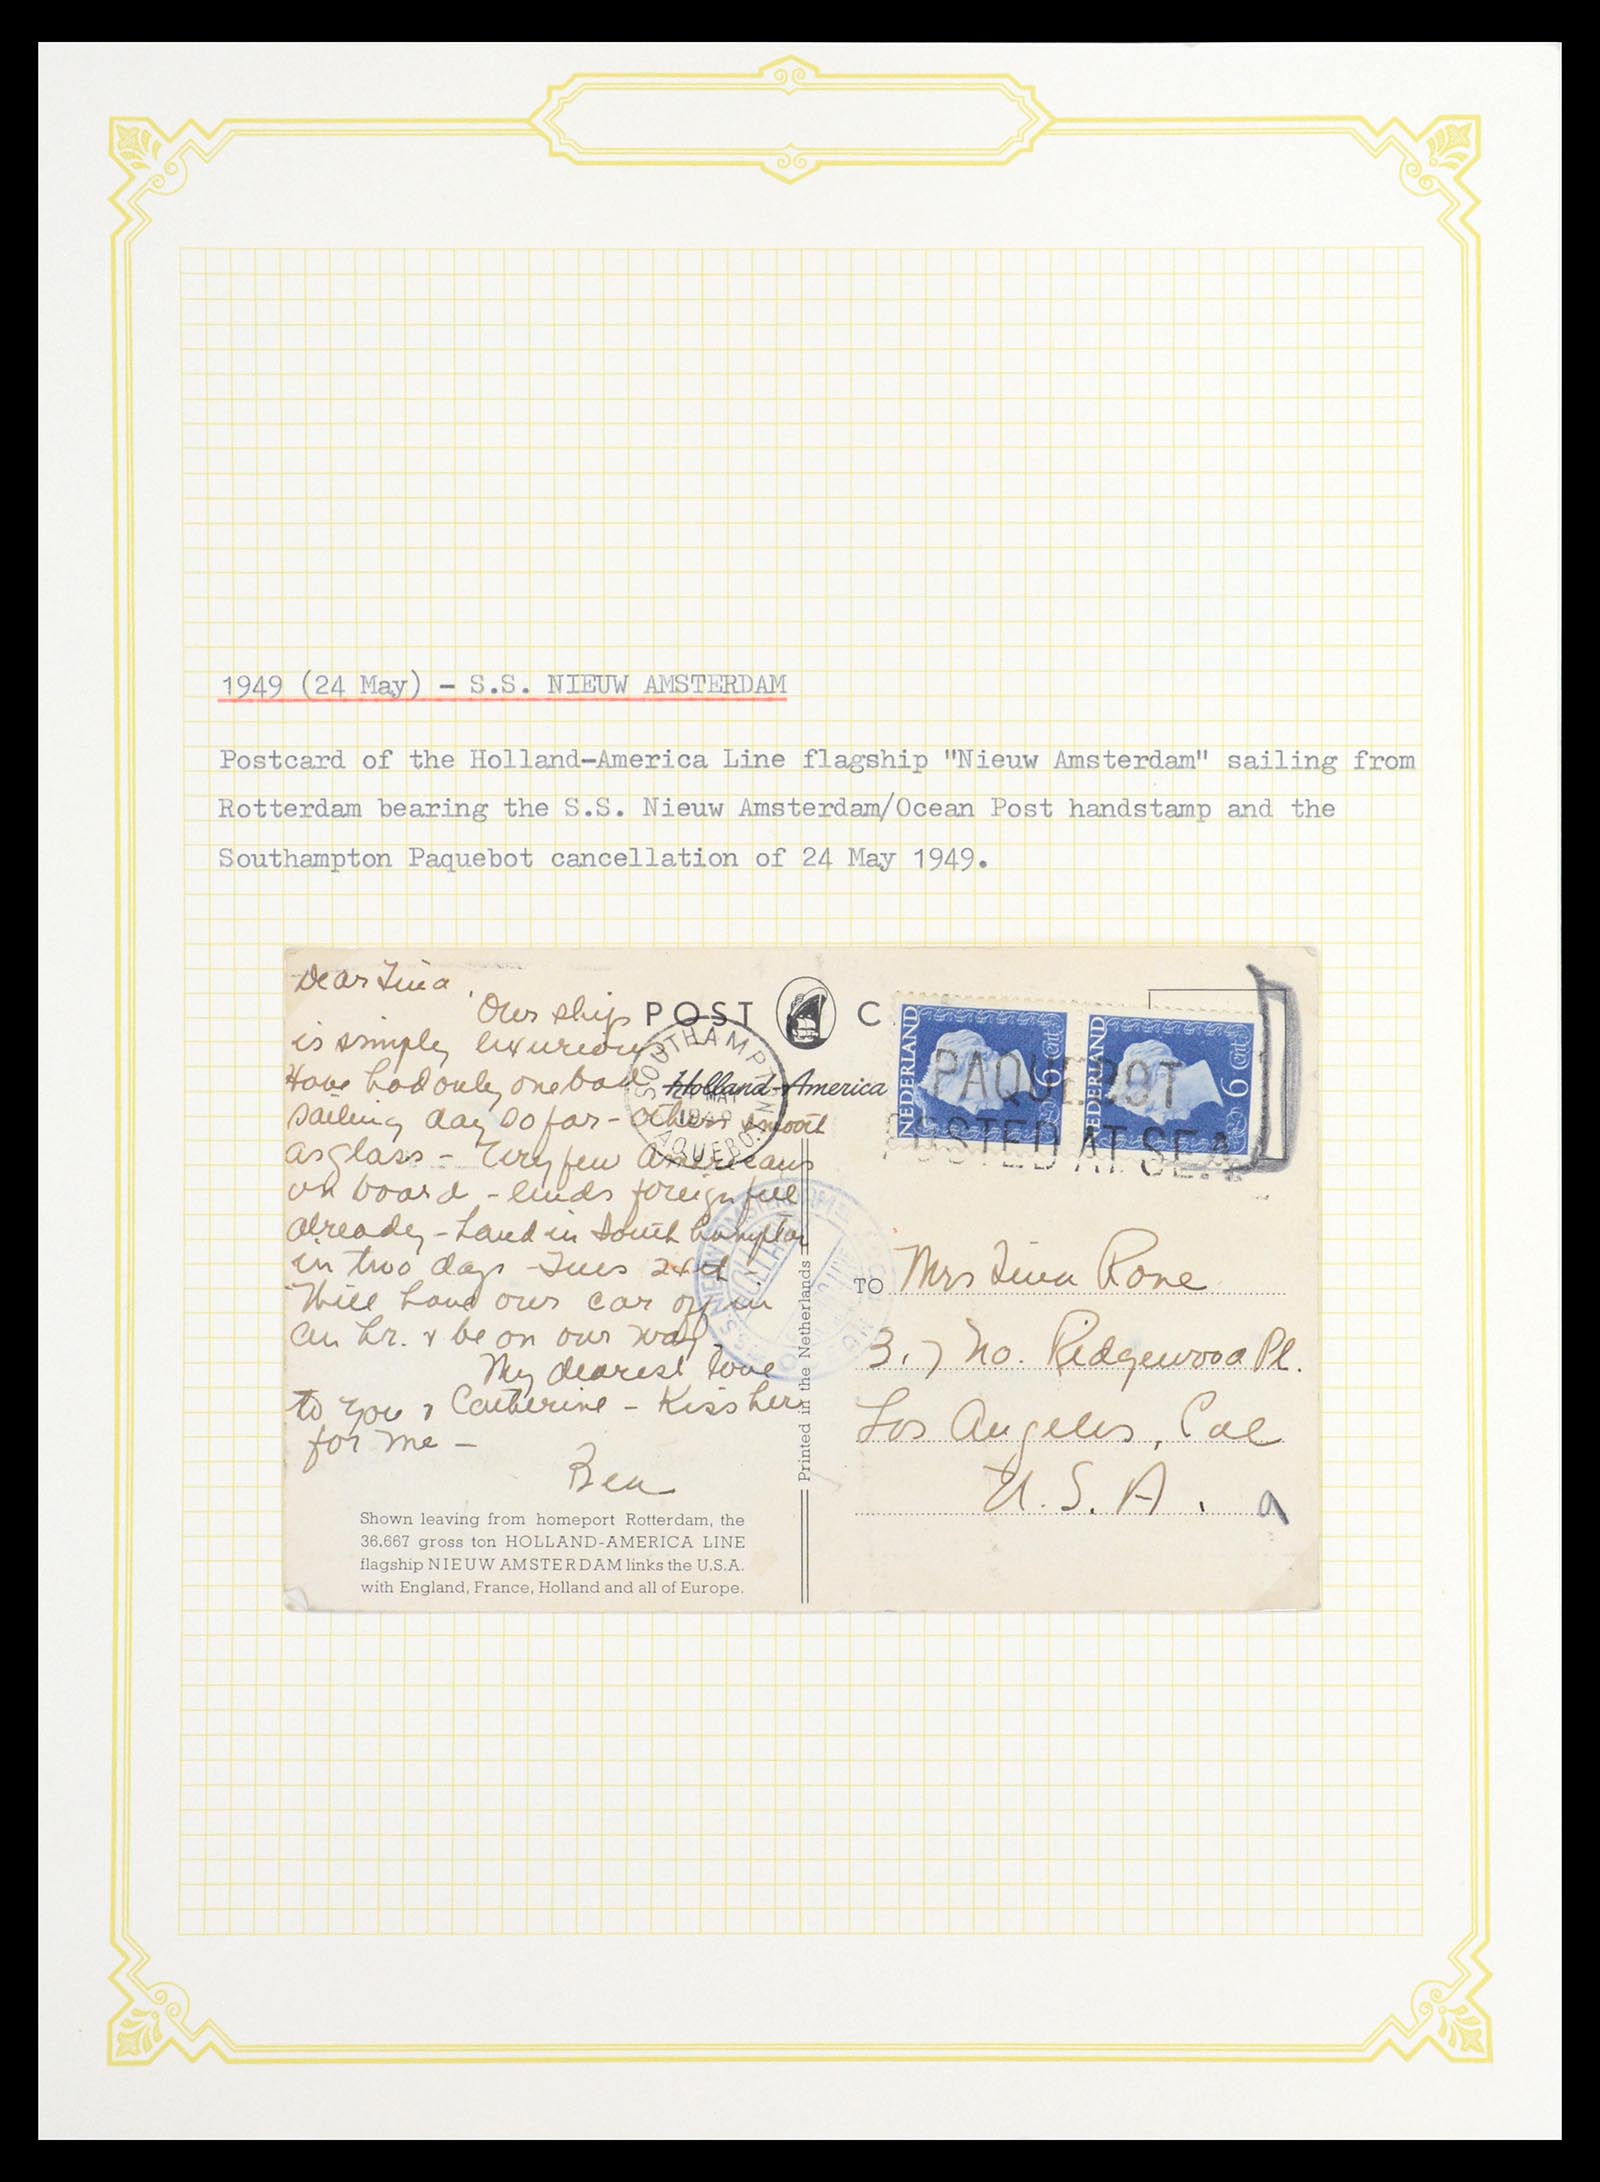 1949 (24 May) - S.S. NIEUW AMSTERDAM
Postcard of the Holland-America Line flagship "Nieuw Amsterdam" sailing from
Rotterdam bearing the S.S. Nieuw Amsterdam/Ocean Post handstamp and the
Southampton Paquebot cancellation of 24 May 1949.
Dear Tina,
Our ship
is simply luxurious
Have had only one bad
sailing day so far - others smooth
as glass - Very few Americans
on board - foreign
already - Land in Southampton
in two days - Tues 24th.
Will have our car off in
an hr. & be on our way
My dearest love
to you & Catherine - Kiss her
for me -
Ben
Shown leaving from homeport Rotterdam, the
36.667 gross ton HOLLAND-AMERICA LINE
flagship NIEUW AMSTERDAM links the U.S.A.
with England, France, Holland and all of Europe.
POST C
Holland-America
SOUTHAMPTON
MAY
1949
PAQUEBOT
NEDERLAND 6 cnt
NEDERLAND 6 cnt
PAQUEBOT
POSTED AT SEA
Printed in the Netherlands
TO Mrs Tina Rone
No. Ridgewood Pl.
Los Angeles, Cal
U.S.A.